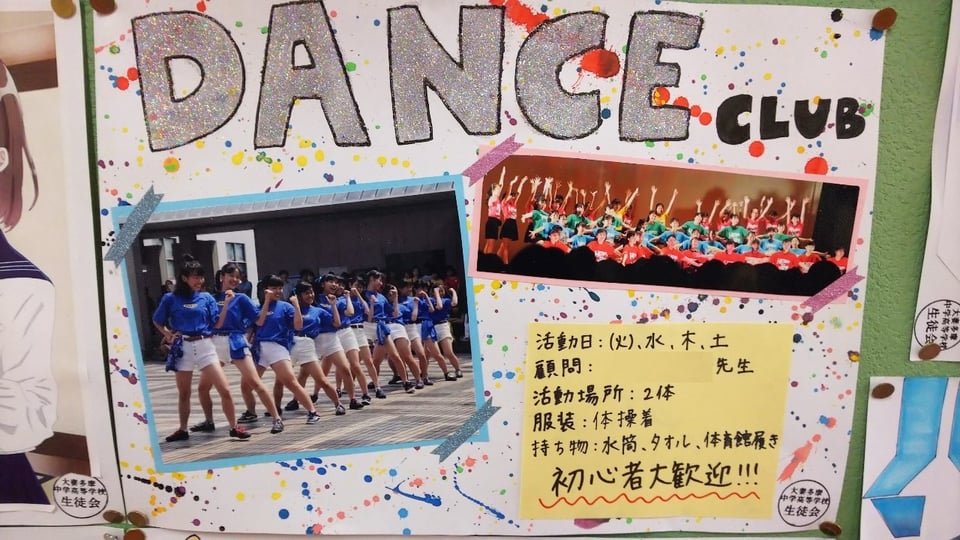 DANCE CLUB
活動日:(火)、水、木、土
顧問: 先生
活動場所:2体
服装:体操着
持ち物:水筒、タオル、体育館履き
初心者大歓迎!!!
大妻多摩
中学高等学校
生徒会
大妻多摩
中学高等学校
生徒会
大妻多摩
中学高等学校
生徒会